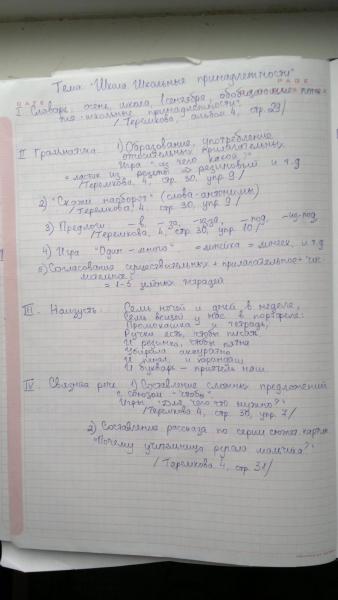 DATE
PAGE
Тема "Школа. Школьные принадлежности"
I Словарь: осень, школа, 1 сентября, обобщающее поня-
тие - школьные принадлежности.
/Теремкова, альбом 4, стр 29/
II Грамматика. 1) Образование, употребление
относительных прилагательных
Игра "Из чего какой?"
= ластик из резины ⇒ резиновый и т.д
/Теремкова, 4, стр. 30, упр 9/
2) "Скажи наоборот" (слова-антонимы)
/Теремкова, 4, стр 30, упр. 9/
3) Предлоги -в, -за, -из-за, -под, -из-под
/Теремкова, 4, стр. 30, упр 10/
4) Игра "Один - много" = линейка = линеек, и т.д
5) Согласование существительных + прилагательное + чис-
лительное
= 1-5 тетрадей
III. Наизусть: Семь ночей и дней в неделе,
Семь вещей у нас в портфеле:
Промокашка и тетрадь,
Ручка есть, чтобы писать.
И резинка, чтоб пятна
Убирала аккуратно
И пенал, и карандаш
И букварь - приятель наш.
IV Связная речь. 1) Составление сложных предложений
с союзом "чтобы"
Игра "Для чего что нужно?"
/Теремкова 4, стр. 30, упр. 7/
2) Составление рассказа по серии сюжет. картин
"Почему учительница ругала мальчика?"
/Теремкова 4, стр. 31/